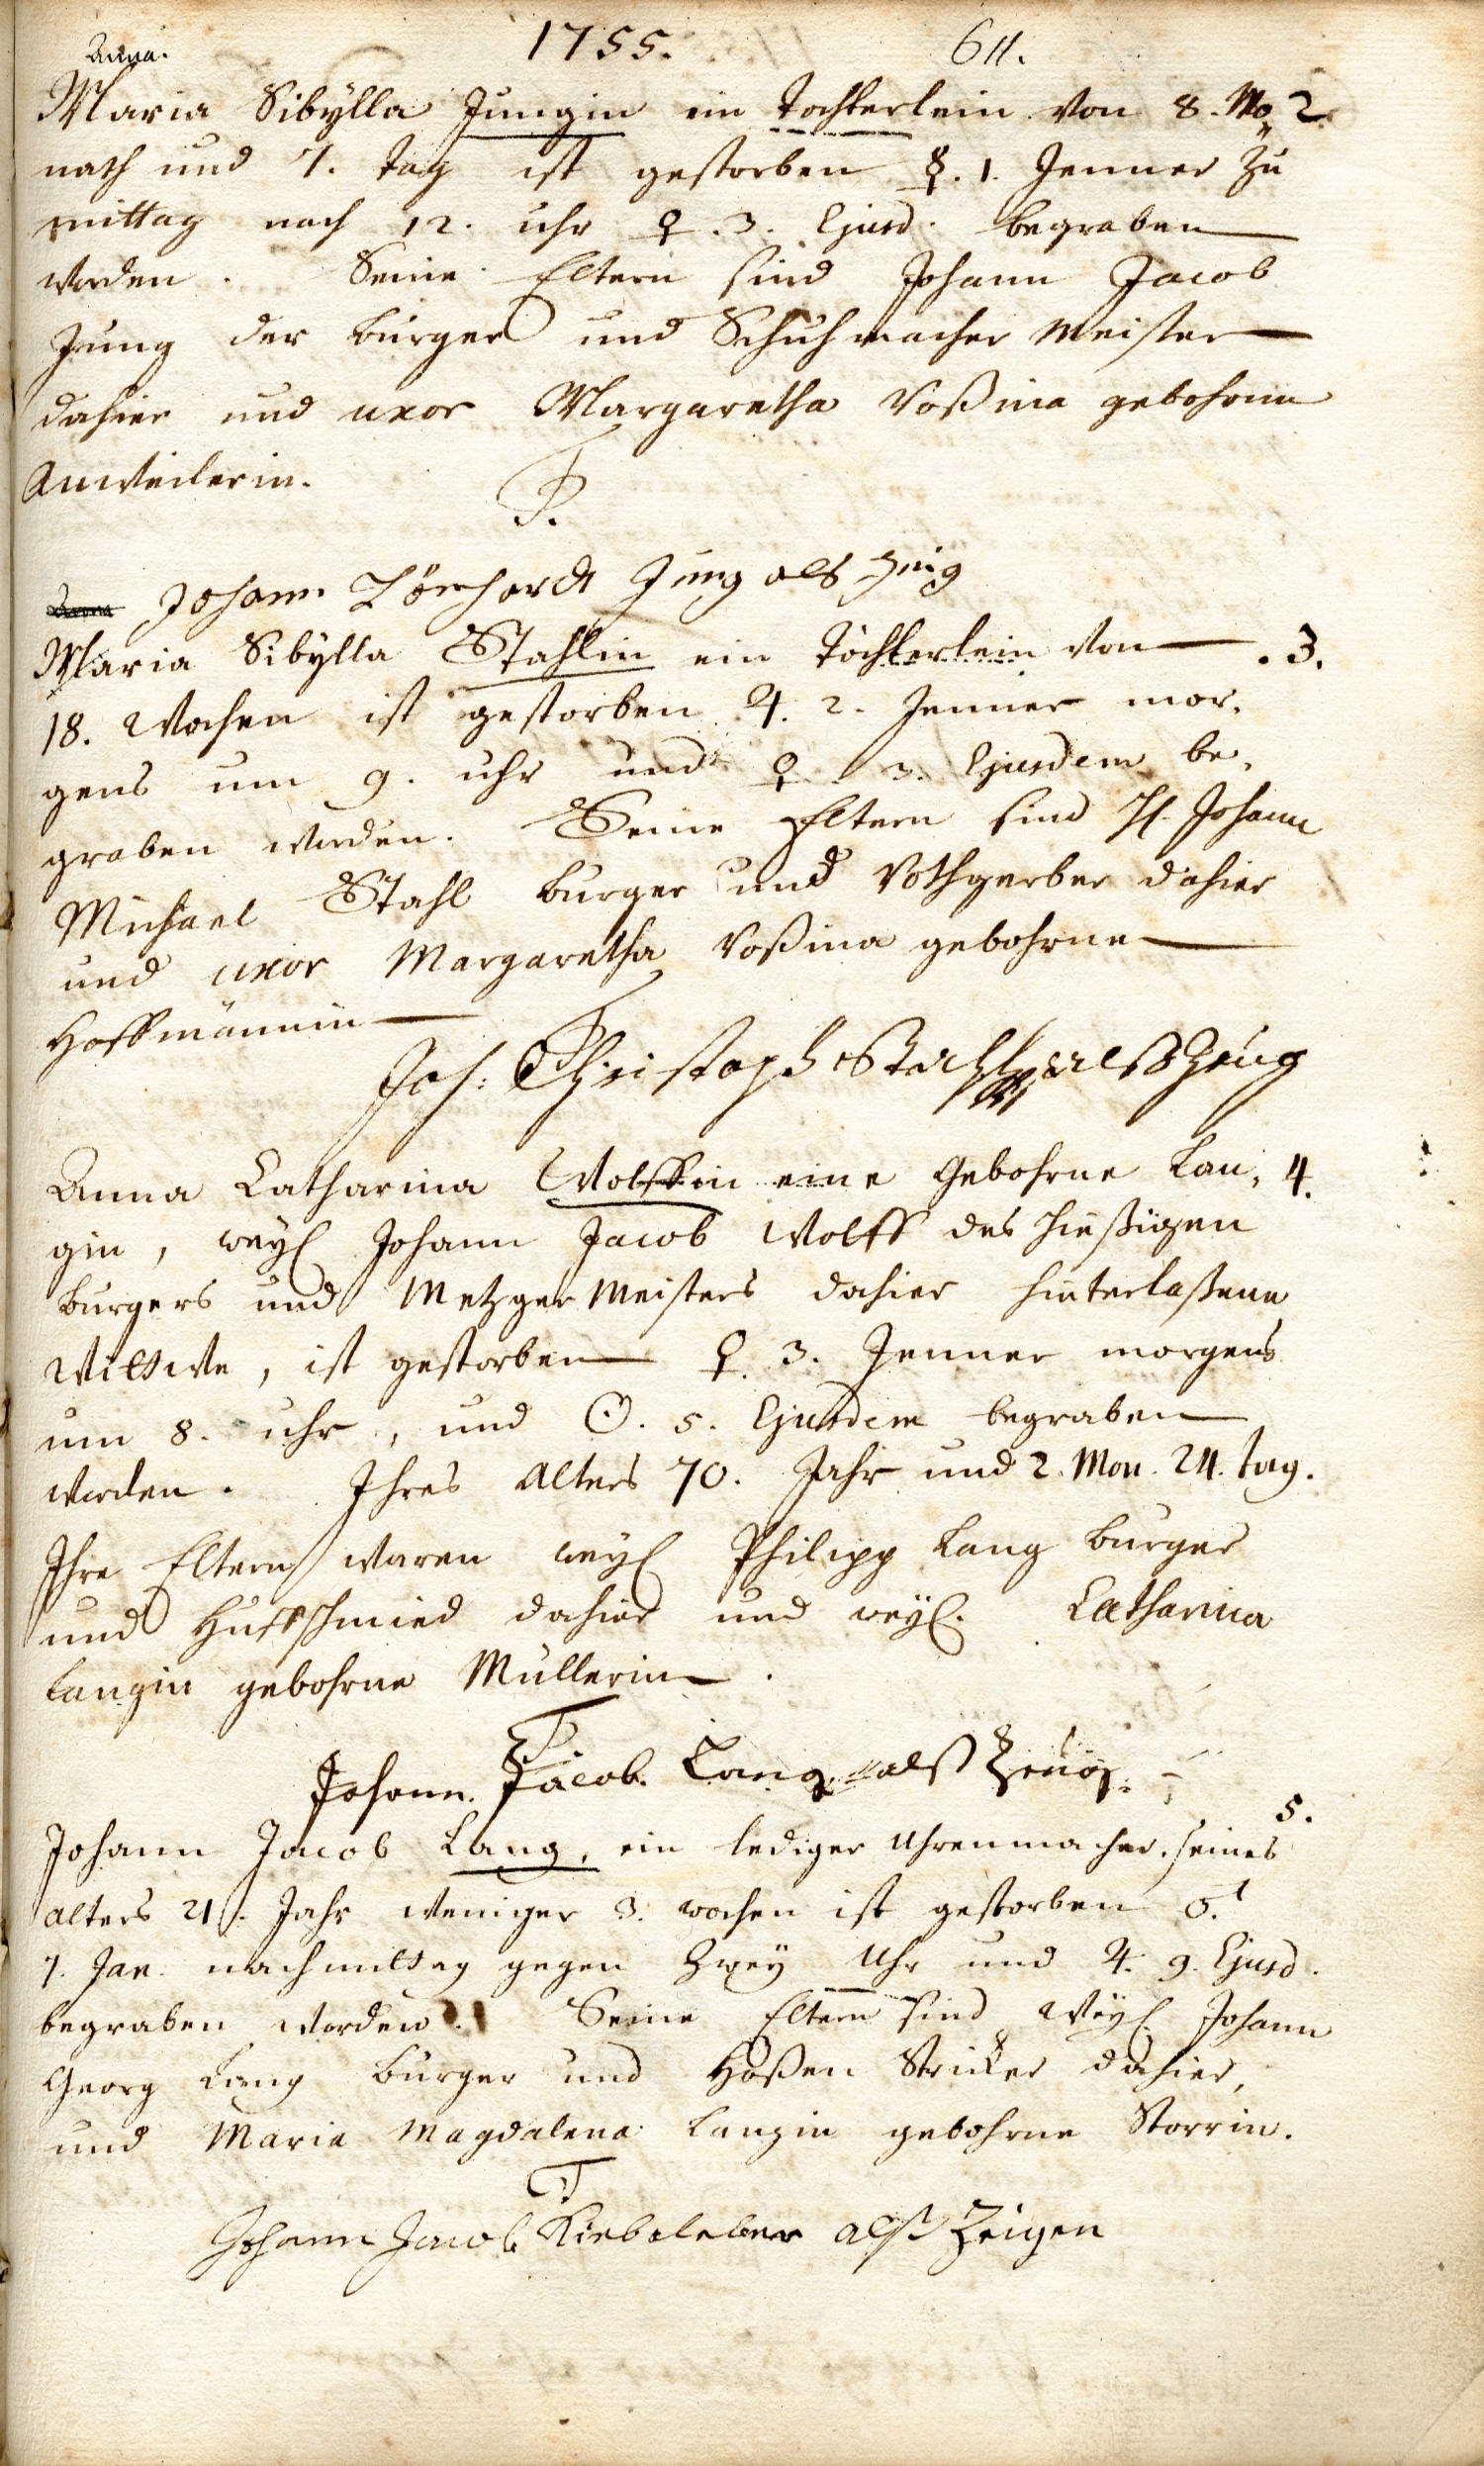 1755. 611.
Anna.
Maria Sibÿlla Jungin ein Tochterlein von 8. Mo„ 2.
nath und 7. tag ist gestorben ☿. 1. Jenner Zu
mittag nach 12. uhr ♀. 3. Ejusd. begraben
worden. Seine Eltern sind Johann Jacob
Jung der burger und Schuhmacher Meister
dahier und uxor Margaretha Roßina gebohrne
Anweilerin.
T.
Johann Lönhardt Jung als Zeig
Maria Sibÿlla Stahlin ein Töchterlein von . 3.
18. Wochen ist gestorben ♃. 2. Jenner mor„
gens um 9. uhr und ♀. 3. Ejusdem be„
graben worden. Seine Eltern sind H. Johann
Michael Stahl burger und Rothgerber dahier
und uxor Margaretha Roßina gebohrne
Hoffmännin
Joh: Christoph Stahl alß Zeug
Anna Catharina Wolffin eine Gebohrne Lan„ 4.
gin, weyl Johann Jacob Wolff des hießigen
burgers und Metzger Meisters dahier hinterlaßene
Wittwe, ist gestorben ♀. 3. Jenner morgens
um 8. uhr, und ☉. 5. Ejusdem begraben
worden. Ihres Alters 70. Jahr und 2. Mon. 24. tag.
Ihre Eltern waren weyl Philipp Lang burger
und Huffschmied dahier und weyl. Catharina
Langin gebohrne Mullerin.
T.
Johann. Jacob. Lang. alß Zeug.
5.
Johann Jacob Lang, ein lediger Uhrenmacher. seines
alters 21. Jahr weniger 3. wochen ist gestorben ♂.
7. Jan. nachmittag gegen Zweÿ Uhr und ♃. 9. Ejusd.
begraben worden. Seine Eltern sind Weÿl. Johann
Georg Lang burger und Hoßen Stricker dahier,
und Maria Magdalena Langin gebohrne Storrin.
T
Johann Jacob Kiebeleber alß Zeigen